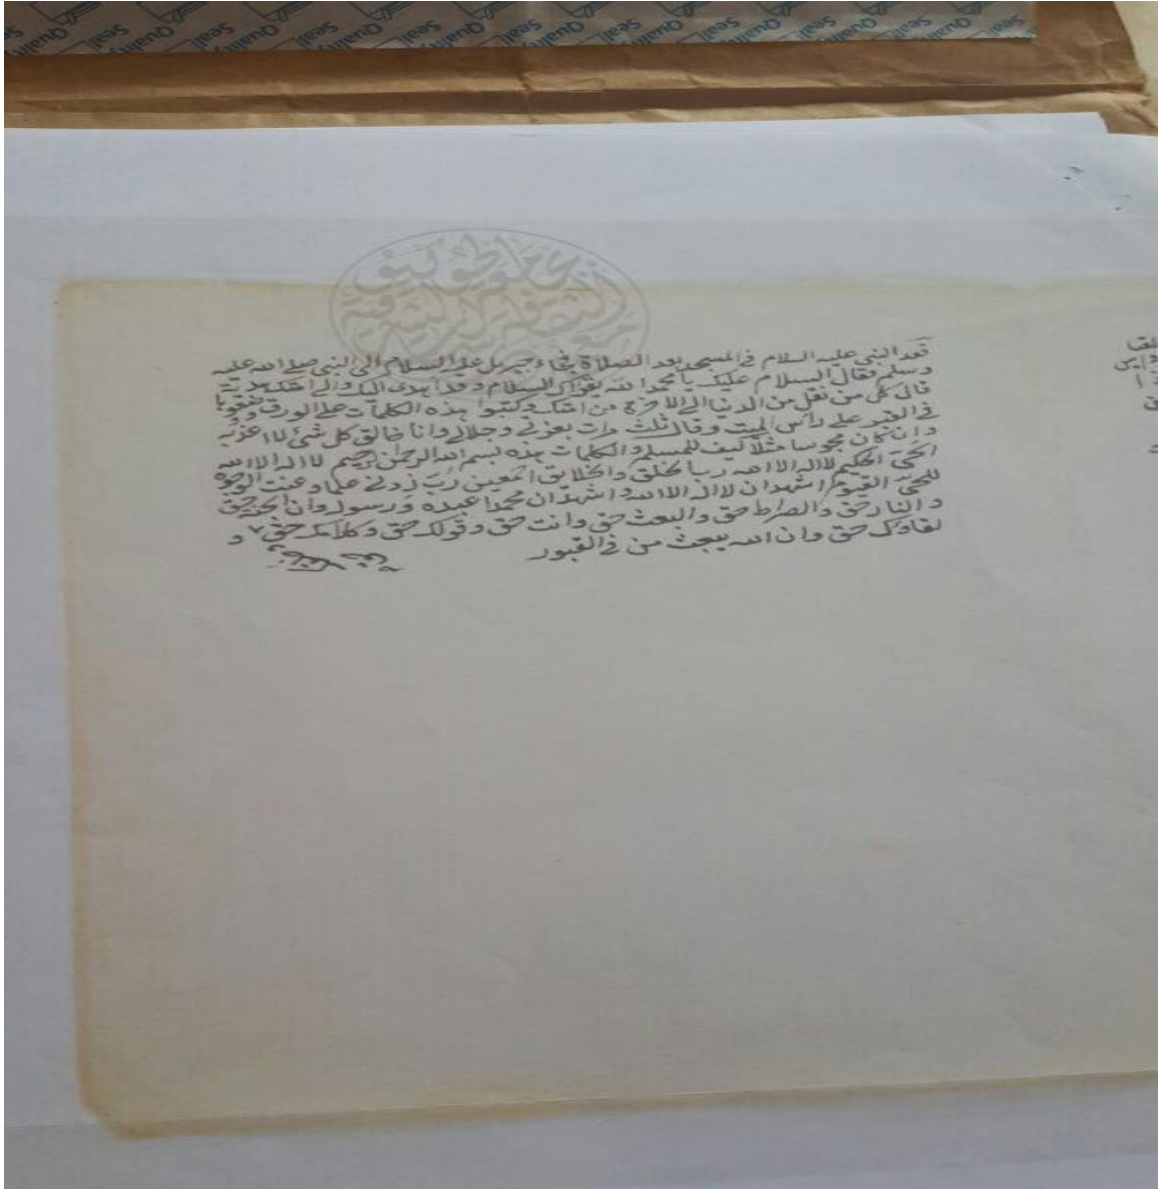 Quality Seal Quality Seal Quality Seal Quality Seal Quality Seal Quality Seal
قعد النبي عليه السلام في المسجد بعد الصلاة فجاء جبريل عليه السلام الى النبي صلى الله عليه
وسلم فقال السلام عليك يا محمد الله يقرأك السلام وقد اهدى اليك والى امتك هدية
قال كل من نقل من الدنيا الى الاخرة من امتك وكتبوا هذه الكلمات على الورق
في القبر على رأس الميت وقال ثلث مرات بعزتي وجلالي وانا خالق كل شئ لا اعذبه
وان كان مجوسا مثلا كيف للمسلم والكلمات هذه بسم الله الرحمن الرحيم لا اله الا الله
الحى الحكيم لا اله الا الله رب الخلق والخلايق اجمعين رب زدني علما وعنت الوجوه
للحى القيوم اشهد ان لا اله الا الله واشهد ان محمدا عبده ورسوله وان الجنة حق
و النار حق والصراط حق والبعث حق وانت حق وقولك حق وكلامك حق و
لقاؤك حق وان الله يبعث من في القبور